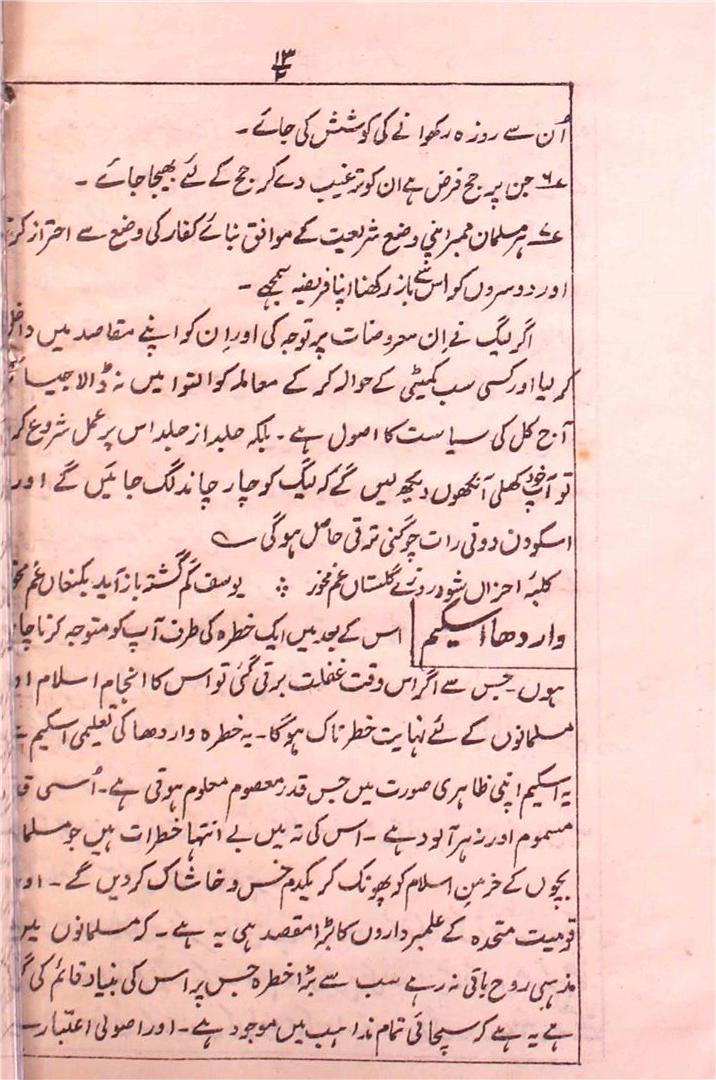 ۱۳
۲
اُن سے روزہ رکھوانے کی کوشش کی جائے۔
۶؎ جن پر حج فرض ہے ان کو ترغیب دے کر حج کے لئے بھیجا جائے۔
۷؎ ہر مسلمان ممبر اپنی وضع شریعت کے موافق بنائے کفار کی وضع سے احتراز کرے
اور دوسروں کو اس سے باز رکھنا اپنا فریضہ سمجھے۔
اگر لیگ نے اِن معروضات پر توجہ کی اور اِن کو اپنے مقاصد میں داخل
کر لیا اور کسی سب کمیٹی کے حوالہ کر کے معاملہ کو التوا میں نہ ڈالا جیسا
آج کل کی سیاست کا اصول ہے۔ بلکہ جلد از جلد اس پر عمل شروع کر
تو آپ خود کھلی آنکھوں دیکھ لیں گے کہ لیگ کو چار چاند لگ جائیں گے اور
اسکو دن دونی رات چوگنی ترقی حاصل ہوگی ؎
کلبۂ احزاں شود روزے گلستاں غم مخور ؞ یوسف گم گشتہ باز آید بکنعاں غم مخور
واردھا اسکیم اس کے بعد میں ایک خطرہ کی طرف آپ کو متوجہ کرنا چا
ہوں۔ جس سے اگر اس وقت غفلت برتی گئی تو اس کا انجام اسلام او
مسلمانوں کے لئے نہایت خطرناک ہوگا۔ یہ خطرہ واردھا کی تعلیمی اسکیم ہے
یہ اسکیم اپنی ظاہری صورت میں جس قدر معصوم معلوم ہوتی ہے۔ اُسی قد
مسموم اور زہر آلود ہے۔ اس کی تہ میں بے انتہا خطرات ہیں جو مسلما
بچوں کے خرمنِ اسلام کو پھونک کر یکدم خس و خاشاک کر دیں گے۔ اور
قومیت متحدہ کے علمبرداروں کا بڑا مقصد ہی یہ ہے۔ کہ مسلمانوں میں
مذہبی روح باقی نہ رہے سب سے بڑا خطرہ جس پر اس کی بنیاد قائم کی گ
ہے یہ ہے کہ سچائی تمام مذاہب میں موجود ہے۔ اور اصولی اعتبار سے